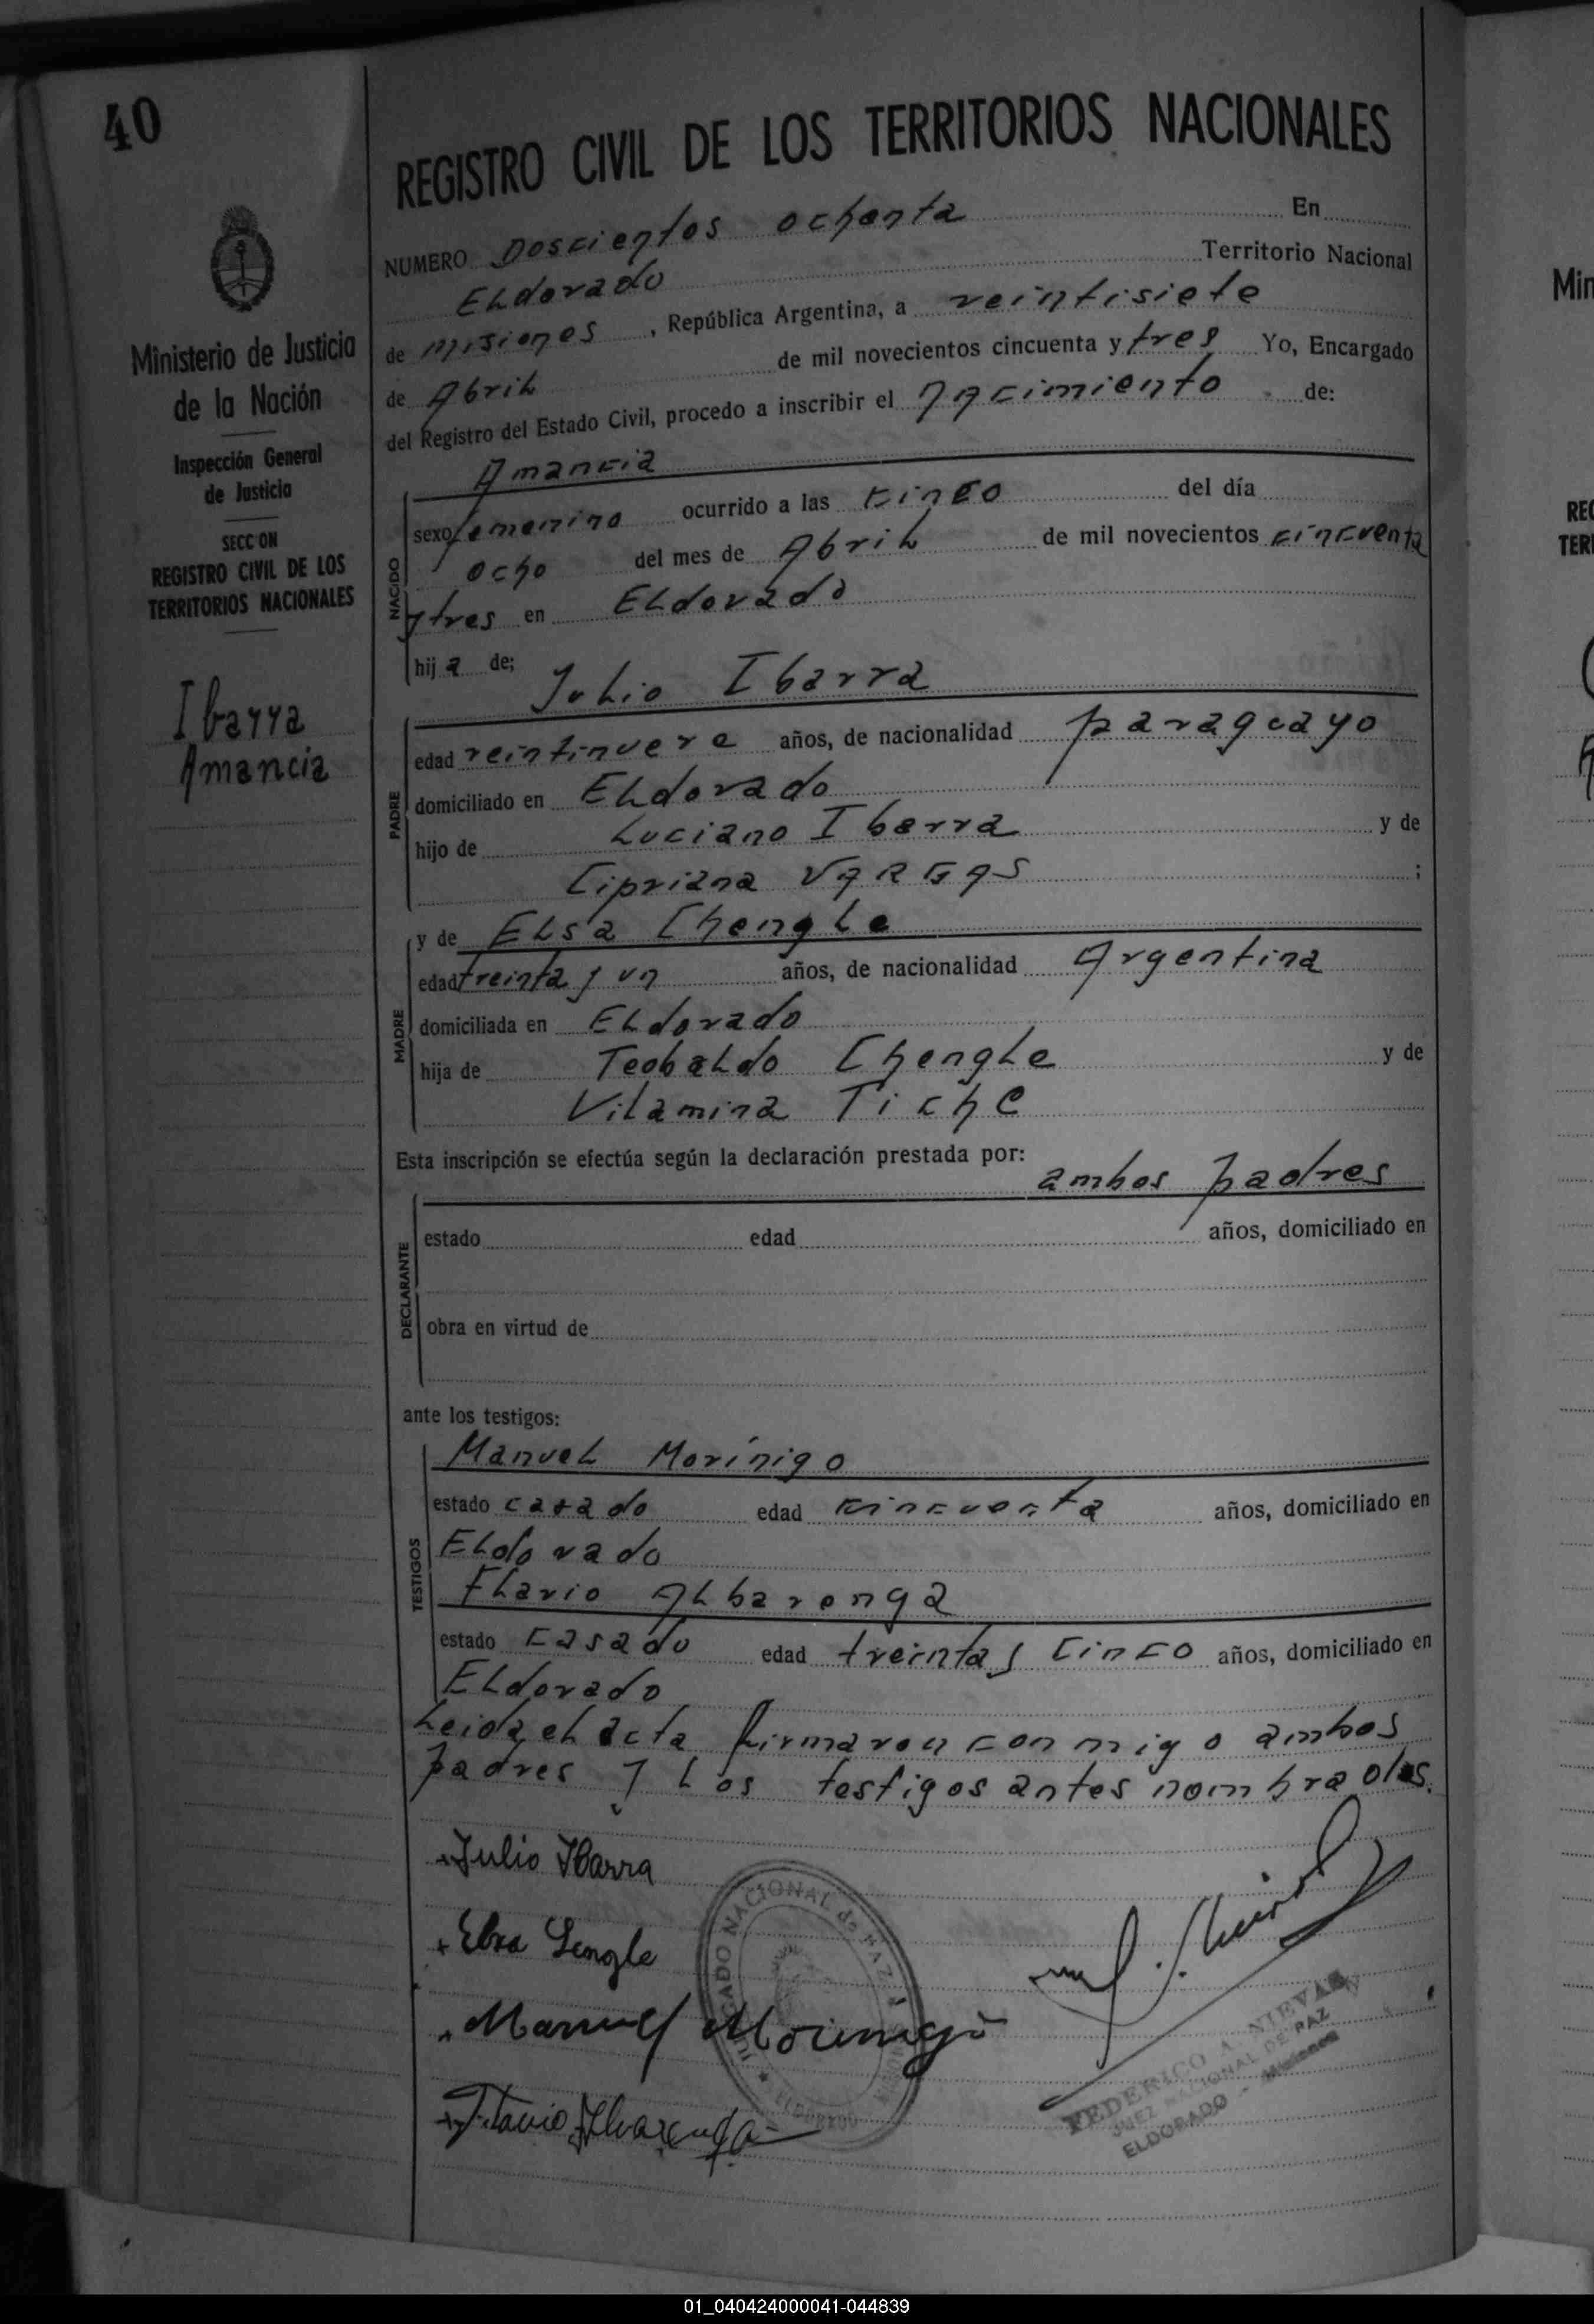 40
REGISTRO CIVIL DE LOS TERRITORIOS NACIONALES
NUMERO Doscientos ochenta En
ELdorado Territorio Nacional
de misiones, República Argentina, a veintisiete
de AbriL de mil novecientos cincuenta y tres Yo, Encargado
del Registro del Estado Civil, procedo a inscribir el Nacimiento de:
Ministerio de Justicia
de la Nación
Inspección General
de Justicia
SECCION
REGISTRO CIVIL DE LOS
TERRITORIOS NACIONALES
Ibarra
Amancia
NACIDO
Amancia
sexo femenino ocurrido a las cinco del día
ocho del mes de AbriL de mil novecientos cincuenta
y tres en ELdorado
hija de; JuLio Ibarra
PADRE
edad veintinueve años, de nacionalidad paraguayo
domiciliado en ELdorado
hijo de Luciano Ibarra y de
Cipriana VARGAS ;
MADRE
y de ELsa ChengLe
edad treinta y un años, de nacionalidad Argentina
domiciliada en ELdorado
hija de TeobaLdo ChengLe y de
ViLamina Tiche
Esta inscripción se efectúa según la declaración prestada por:
ambos padres
DECLARANTE
estado edad años, domiciliado en
obra en virtud de
ante los testigos:
TESTIGOS
ManueL Morínigo
estado casado edad cincuenta años, domiciliado en
ELdorado
FLavio ALbarenga
estado casado edad treinta y cinco años, domiciliado en
ELdorado
Leida eL acta firmaron conmigo ambos
padres y Los testigos antes nombrados.
Julio Ibarra
Elsa Lengle
Manuel Morinigo
Flavio Alvarenga
JUZGADO NACIONAL de PAZ
ELDORADO
FEDERICO A. NIEVAS
JUEZ NACIONAL DE PAZ
ELDORADO - Misiones
Min
REG
TERR
01_040424000041-044839